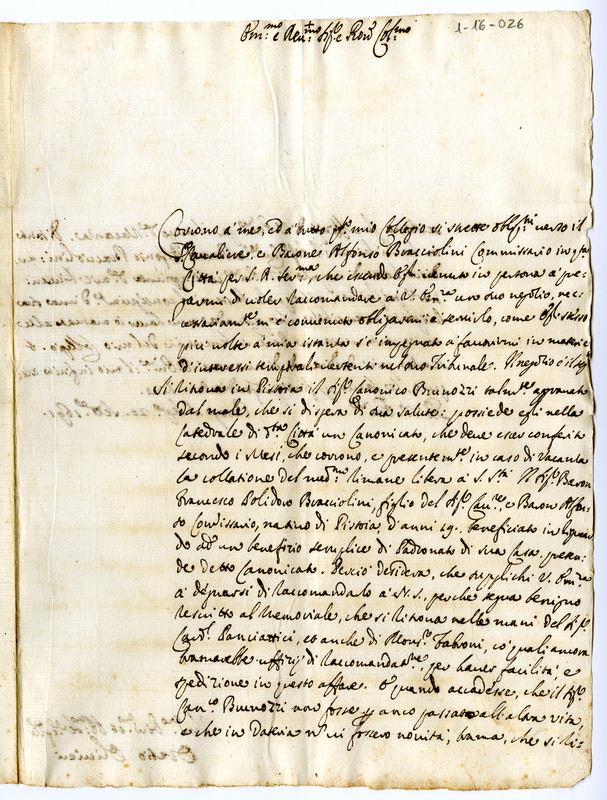 1-16-026
Em.mo e Rev.mo Sig.r e Pron. Col.mo
Corrono à me, ed à tutto q.to mio Collegio sì strette oblig.ni verso il
Cavaliere, e Barone Alfonso Bracciolini Commissario in q.ta
Città per S. A. Ser.ma, che essendo egli venuto in persona à pre-
garmi di voler raccomandare à V. Em.za un suo negozio, ne-
cessariam.te m'è convenuto obligarmi à servirlo, come egli stesso
più volte à mia istanza s'è impegnato à favorirmi in materie
d'interessi temporali vertenti nel suo Tribunale. Il negozio è il seg.
Si ritrova in Pistoia il Sig.r Canonico Brunozzi talm.te aggravato
dal male, che si dispera di sua salute: possiede egli nella
Catedrale di d.ta Città un Canonicato, che deve esser conferito
secondo i Mesi, che corrono, e presentem.te in caso di vacanza
la collatione del med.mo rimane libera à S. S.tà Il Sig.r Baron
Francesco Polidoro Bracciolini, figlio del Sig.r Cav.re, e Baron Alfon-
so Com̃issario, nativo di Pistoia, d'anni 19. beneficiato in
do ad un benefizio semplice di Padronato di sua Casa, preten-
de detto Canonicato. Perciò desidera, che supplichi V. Em.za
à degnarsi di raccomandarlo à N. S., perche segua benigno
rescritto al Memoriale, che si ritrova nelle mani del Sig.r
Card. Panciatici, ed anche di Mons.r Fabroni, co' quali ancora
bramarebbe uffizij di raccomandat.ne, per haver facilità, e
spedizione in questo affare. E quando accadesse, che il Sig.r
Can.co Brunozzi non fosse p anco passato all'altra vita,
e che in Dateria n' vi fossero novità, brama, che si ri-